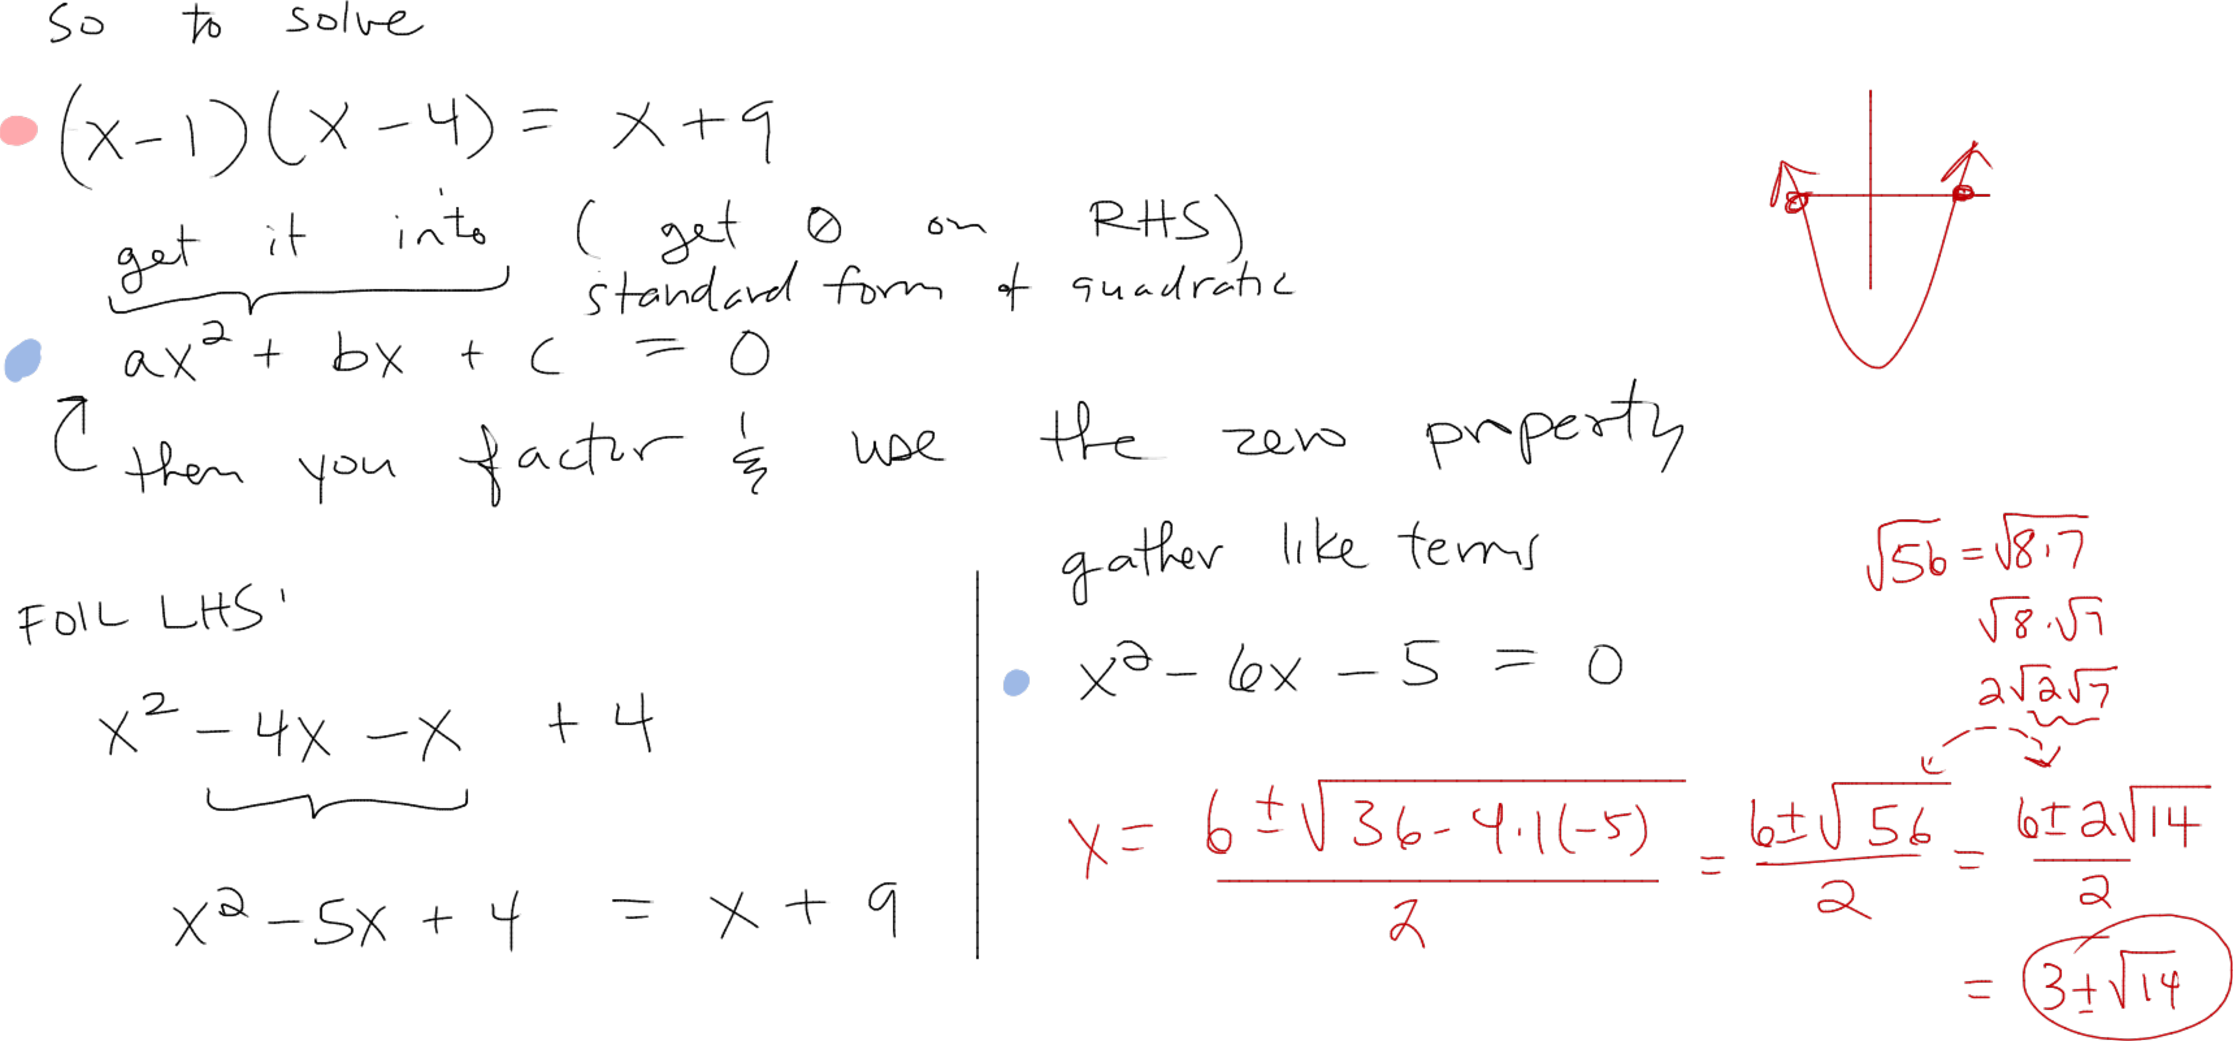 so to solve
(x-1)(x-4) = x+9
get it into (get 0 on RHS)
standard form of quadratic
ax² + bx + c = 0
then you factor & use the zero property
FOIL LHS
x² - 4x - x + 4
x² - 5x + 4 = x + 9
gather like terms
x² - 6x - 5 = 0
√56 = √8·7
√8·√7
2√2√7
x = (6 ± √(36 - 4·1(-5)))/2 = (6 ± √56)/2 = (6 ± 2√14)/2
= 3 ± √14